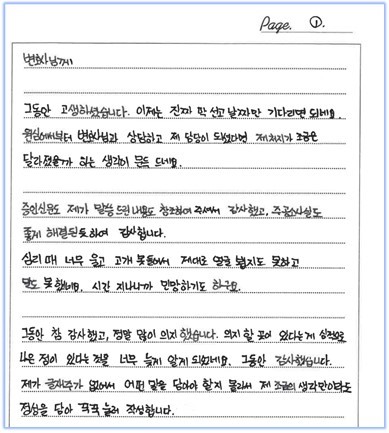 Page. ①.
변호사님께!
그동안 고생하셨습니다. 이제는 진짜 막 선고 날짜만 기다리면 되네요.
원심에서부터 변호사님과 상담하고 제 담당이 되셨다면 제 처지가 조금은
달라졌을까 하는 생각이 문득 드네요.
증인신문도 제가 말씀 드린 내용도 참조하여 주셔서 감사했고, 주공소사실도
좋게 해결된듯하여 감사합니다.
심리 때 너무 울고 고개 못들어서 제대로 얼굴 뵙지도 못하고
말도 못 했네요. 시간 지나니까 민망하기도 하구요.
그동안 참 감사했고, 정말 많이 의지 했습니다. 의지 할 곳이 있다는게 심적으로
나은 점이 있다는 것을 너무 늦게 알게 되었네요. 그동안 감사했습니다.
제가 글재주가 없어서 어떤 말을 담아야 할지 몰라서 제 조금의 생각만이라도
정성을 담아 꾹꾹 눌러 작성합니다.